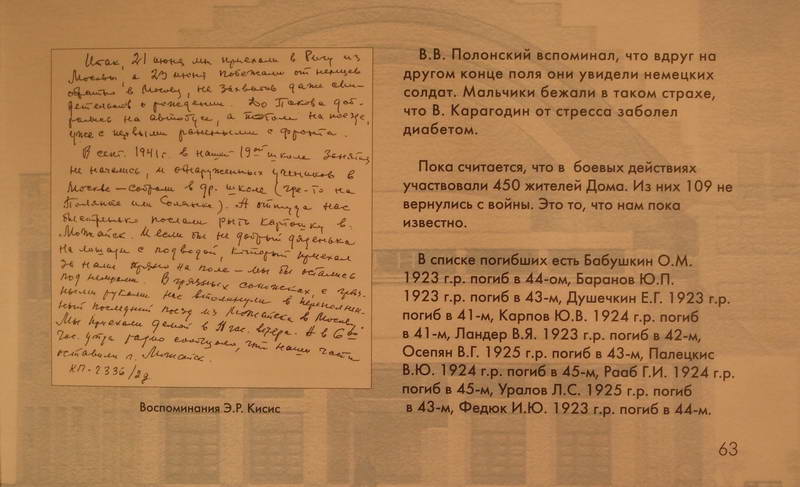 Итак, 21 июня мы приехали в Ригу из
Москвы, а 29 июня побежали от немцев
обратно в Москву, не захватив даже сви-
детельств о рождении. До Пскова доб-
рались на автобусе, а потом на поезде,
уже с первыми ранеными с фронта.
В сент. 1941 г. в нашей 19ой школе занятия
не начались, и обнаруженных учеников в
Москве – собрали в др. школе (где-то на
Полянке или Солянке). А оттуда нас
быстренько послали рыть картошку в
Можайск. И если бы не добрый дяденька
на лошади с подводой, который приехал
за нами прямо на поле – мы бы остались
под немцами. В грязных сапожках, с гряз-
ными руками нас втолкнули в переполнен-
ный последний поезд из Можайска в Москву.
Мы приехали домой в 11 час. вечера. А в 6
час. утра радио сообщило, что наши части
оставили г. Можайск.
КП-2336/2д
Воспоминания Э.Р. Кисис
В.В. Полонский вспоминал, что вдруг на
другом конце поля они увидели немецких
солдат. Мальчики бежали в таком страхе,
что В. Карагодин от стресса заболел
диабетом.
Пока считается, что в боевых действиях
участвовали 450 жителей Дома. Из них 109 не
вернулись с войны. Это то, что нам пока
известно.
В списке погибших есть Бабушкин О.М.
1923 г.р. погиб в 44-ом, Баранов Ю.П.
1923 г.р. погиб в 43-м, Душечкин Е.Г. 1923 г.р.
погиб в 41-м, Карпов Ю.В. 1924 г.р. погиб
в 41-м, Ландер В.Я. 1923 г.р. погиб в 42-м,
Осепян В.Г. 1925 г.р. погиб в 43-м, Палецкис
В.Ю. 1924 г.р. погиб в 45-м, Рааб Г.И. 1924 г.р.
погиб в 45-м, Уралов Л.С. 1925 г.р. погиб
в 43-м, Федюк И.Ю. 1923 г.р. погиб в 44-м.
63